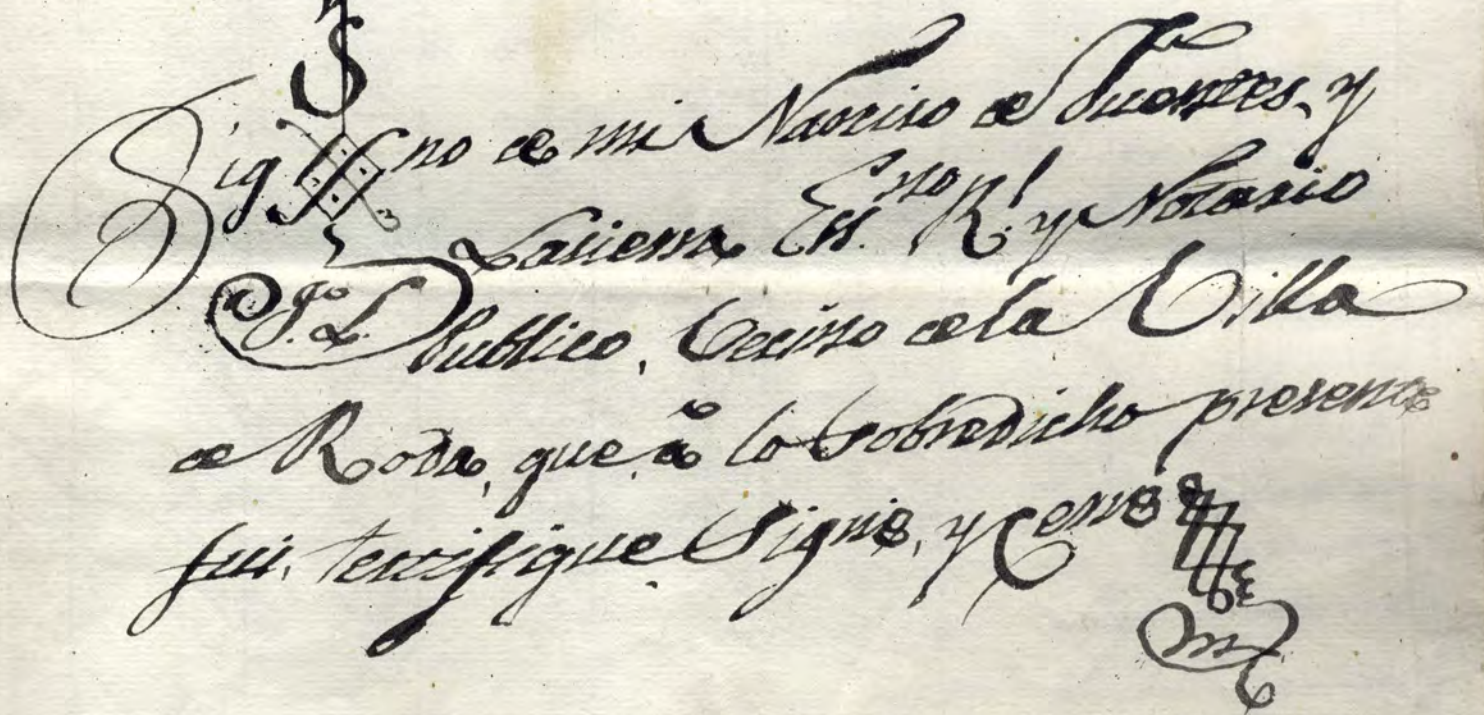 Sig no de mi Narciso de Fuentes, y
Lasierra Ess.no R.l y Notario
Publico, Vecino de la Villa
de Roda, que, à lo Sobredicho presente
fui, testifique Signé, y Cerré